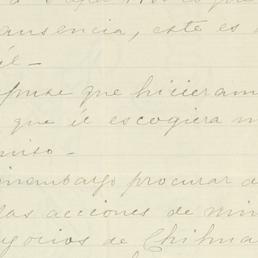 ausencia, este es
él -
puse que hicieram
que él escogiera
miso. -
inembargo procurar
las acciones de min
gocios de Chihua